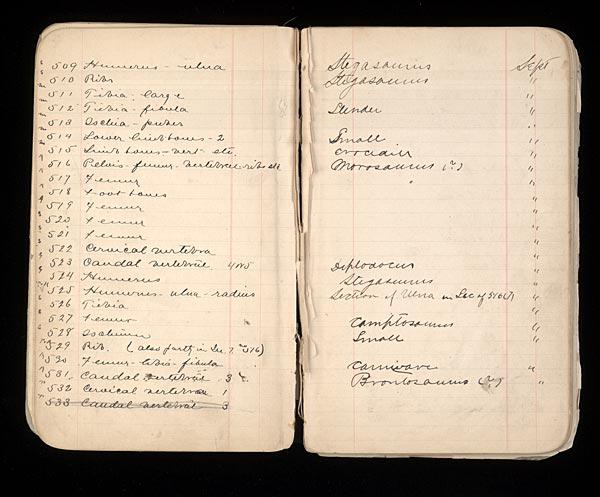 509 Humerus - ulna
510 Ribs
511 Tibia - Large
512 Tibia - fibula
513 Ischia - pubes
514 Lower limb bones - 2
515 Limb bones - vert - etc
516 Pelvis - femur - vertebrae - ribs etc
517 Femur
518 Foot bones
519 Femur
520 Femur
521 Femur
522 Cervical vertebra
523 Caudal vertebrae
524 Humerus
525 Humerus - ulna - radius
526 Tibia
527 Femur
528 Ischium
529 Rib. (also partly in 516)
530 Femur - tibia - fibula
531 Caudal vertebrae 3
532 Cervical vertebrae 1
533 Caudal vertebrae 3
Stegasaurus Sept
Stegasaurus "
"
Slender "
"
Small "
"
Morosaurus (?) "
" "
"
"
"
"
"
Diplodocus "
Stegasaurus "
Section of Ulna in Sec of "
"
Camptosaurus "
Small "
Carnivore "
Brontosaurus (?) "